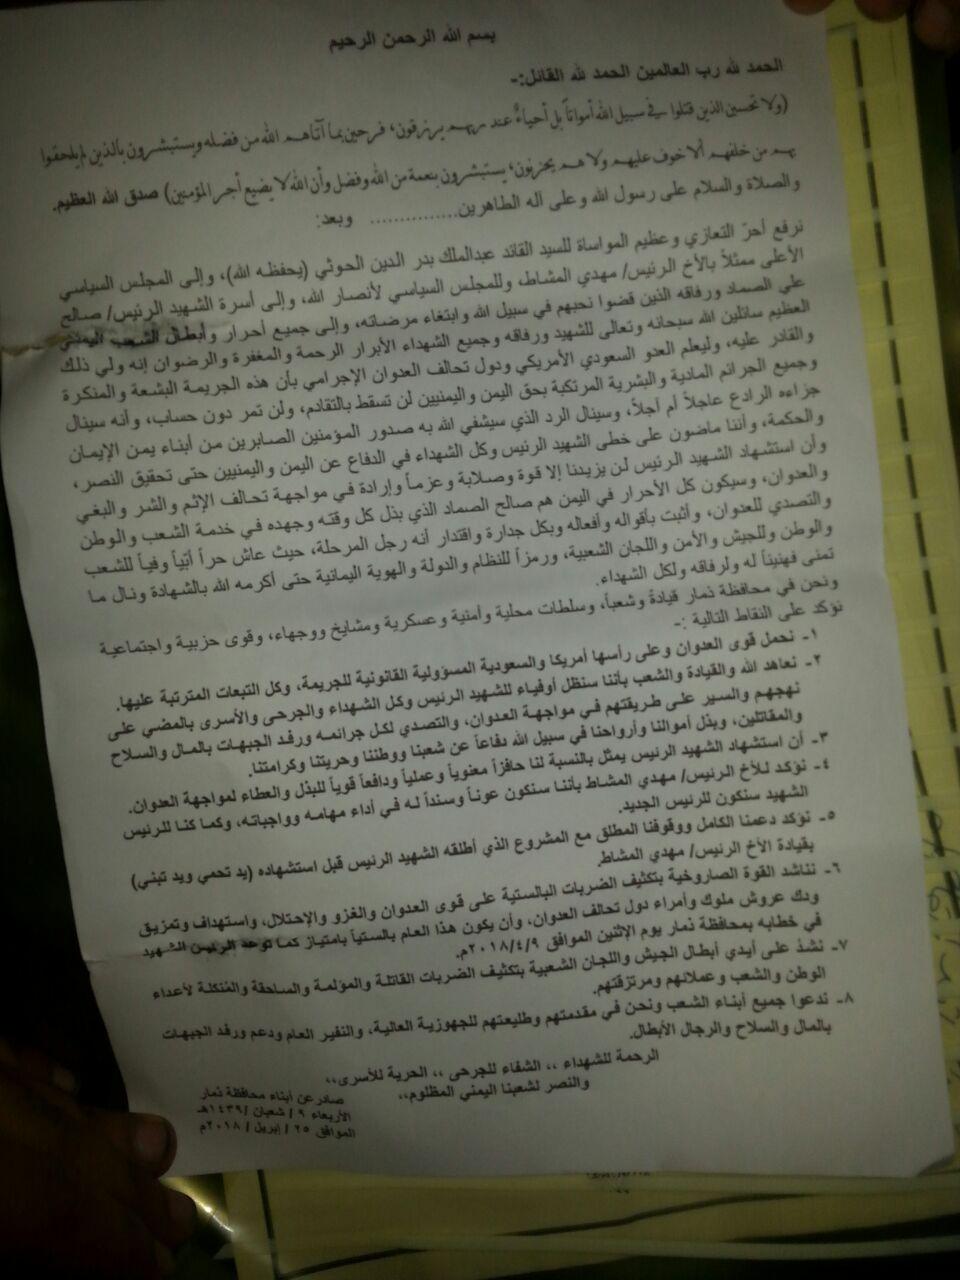 بسم الله الرحمن الرحيم
الحمد لله رب العالمين الحمد لله القائل:-
(ولا تحسبن الذين قتلوا في سبيل الله أمواتاً بل أحياءٌ عند ربهم يرزقون، فرحين بما آتاهم الله من فضله ويستبشرون بالذين لم يلحقوا
بهم من خلفهم ألا خوف عليهم ولا هم يحزنون، يستبشرون بنعمة من الله وفضل وأن الله لا يضيع أجر المؤمنين) صدق الله العظيم.
والصلاة والسلام على رسول الله وعلى آله الطاهرين............... وبعد:
نرفع أحرّ التعازي وعظيم المواساة للسيد القائد عبدالملك بدر الدين الحوثي (يحفظه الله)، وإلى المجلس السياسي
الأعلى ممثلاً بالأخ الرئيس/ مهدي المشاط، وللمجلس السياسي لأنصار الله، وإلى أسرة الشهيد الرئيس/ صالح
علي الصماد ورفاقه الذين قضوا نحبهم في سبيل الله وابتغاء مرضاته، وإلى جميع أحرار وأبطال الشعب اليمني
العظيم سائلين الله سبحانه وتعالى للشهيد ورفاقه وجميع الشهداء الأبرار الرحمة والمغفرة والرضوان إنه ولي ذلك
والقادر عليه، وليعلم العدو السعودي الأمريكي ودول تحالف العدوان الإجرامي بأن هذه الجريمة البشعة والمنكرة
وجميع الجرائم المادية والبشرية المرتكبة بحق اليمن واليمنيين لن تسقط بالتقادم، ولن تمر دون حساب، وأنه سينال
جزاءه الرادع عاجلاً أم آجلاً، وسينال الرد الذي سيشفي الله به صدور المؤمنين الصابرين من أبناء يمن الإيمان
والحكمة، وأننا ماضون على خطى الشهيد الرئيس وكل الشهداء في الدفاع عن اليمن واليمنيين حتى تحقيق النصر،
وأن استشهاد الشهيد الرئيس لن يزيدنا إلا قوة وصلابة وعزماً وإرادة في مواجهة تحالف الإثم والشر والبغي
والعدوان، وسيكون كل الأحرار في اليمن هم صالح الصماد الذي بذل كل وقته وجهده في خدمة الشعب والوطن
والتصدي للعدوان، وأثبت بأقواله وأفعاله وبكل جدارة واقتدار أنه رجل المرحلة، حيث عاش حراً أبيّاً وفياً للشعب
والوطن وللجيش والأمن واللجان الشعبية، ورمزاً للنظام والدولة والهوية اليمانية حتى أكرمه الله بالشهادة ونال ما
تمنى فهنيئاً له ولرفاقه ولكل الشهداء.
ونحن في محافظة ذمار قيادةً وشعباً، وسلطات محلية وأمنية وعسكرية ومشايخ ووجهاء، وقوى حزبية واجتماعية
نؤكد على النقاط التالية :-
١- نحمل قوى العدوان وعلى رأسها أمريكا والسعودية المسؤولية القانونية للجريمة، وكل التبعات المترتبة عليها.
٢- نعاهد الله والقيادة والشعب بأننا سنظل أوفياء للشهيد الرئيس وكل الشهداء والجرحى والأسرى بالمضي على
نهجهم والسير على طريقتهم في مواجهة العدوان، والتصدي لكل جرائمه ورفد الجبهات بالمال والسلاح
والمقاتلين، وبذل أموالنا وأرواحنا في سبيل الله دفاعاً عن شعبنا ووطننا وحريتنا وكرامتنا.
٣- أن استشهاد الشهيد الرئيس يمثل بالنسبة لنا حافزاً معنوياً وعملياً ودافعاً قوياً للبذل والعطاء لمواجهة العدوان.
٤- نؤكد للأخ الرئيس/ مهدي المشاط بأننا سنكون عوناً وسنداً له في أداء مهامه وواجباته، وكما كنا للرئيس
الشهيد سنكون للرئيس الجديد.
٥- نؤكد دعمنا الكامل ووقوفنا المطلق مع المشروع الذي أطلقه الشهيد الرئيس قبل استشهاده (يد تحمي ويد تبني)
بقيادة الأخ الرئيس/ مهدي المشاط.
٦- نناشد القوة الصاروخية بتكثيف الضربات البالستية على قوى العدوان والغزو والإحتلال، واستهداف وتمزيق
ودك عروش ملوك وأمراء دول تحالف العدوان، وأن يكون هذا العام بالستياً بامتياز كما توعد الرئيس الشهيد
في خطابه بمحافظة ذمار يوم الإثنين الموافق ٢٠١٨/٤/٩م.
٧- نشدّ على أيدي أبطال الجيش واللجان الشعبية بتكثيف الضربات القاتلة والمؤلمة والساحقة والمُنكلة لأعداء
الوطن والشعب وعملائهم ومرتزقتهم.
٨- ندعوا جميع أبناء الشعب ونحن في مقدمتهم وطليعتهم للجهوزية العالية، والنفير العام ودعم ورفد الجبهات
بالمال والسلاح والرجال الأبطال.
الرحمة للشهداء ،، الشفاء للجرحى ،، الحرية للأسرى،،
والنصر لشعبنا اليمني المظلوم،،
صادر عن أبناء محافظة ذمار
الأربعاء ٩ / شعبان / ١٤٣٩هـ
الموافق ٢٥ / إبريل / ٢٠١٨م